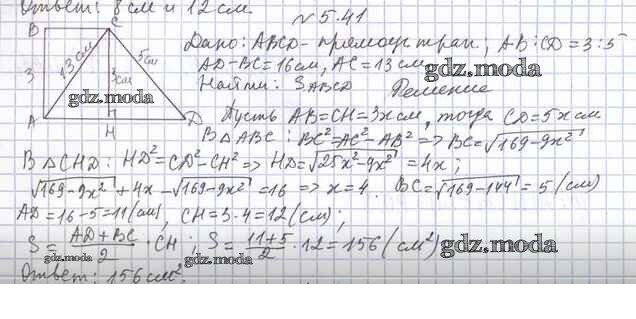 Ответ: 8 см и 12 см.
№ 5.41
B C
3 13 см 3 см 5 см
A H D
Дано: ABCD - прямоуг трап; AB:CD = 3:5
AD-BC = 16 см, AC = 13 см
Найти: S ABCD Решение
Пусть AB=CH=3x см, тогда CD=5x см
В △ABC: BC²=AC²-AB² => BC=√169-9x²
В △CHD: HD²=CD²-CH² => HD=√25x²-9x² = 4x;
√169-9x² + 4x - √169-9x² = 16 => x = 4. BC=√169-144 = 5 (см)
AD = 16-5 = 11 (см), CH = 3·4 = 12 (см);
S = AD+BC/2 · CH; S = 11+5/2 · 12 = 156 (см²)
Ответ: 156 см².
gdz.moda
gdz.moda
gdz.moda
gdz.moda
gdz.moda
gdz.moda